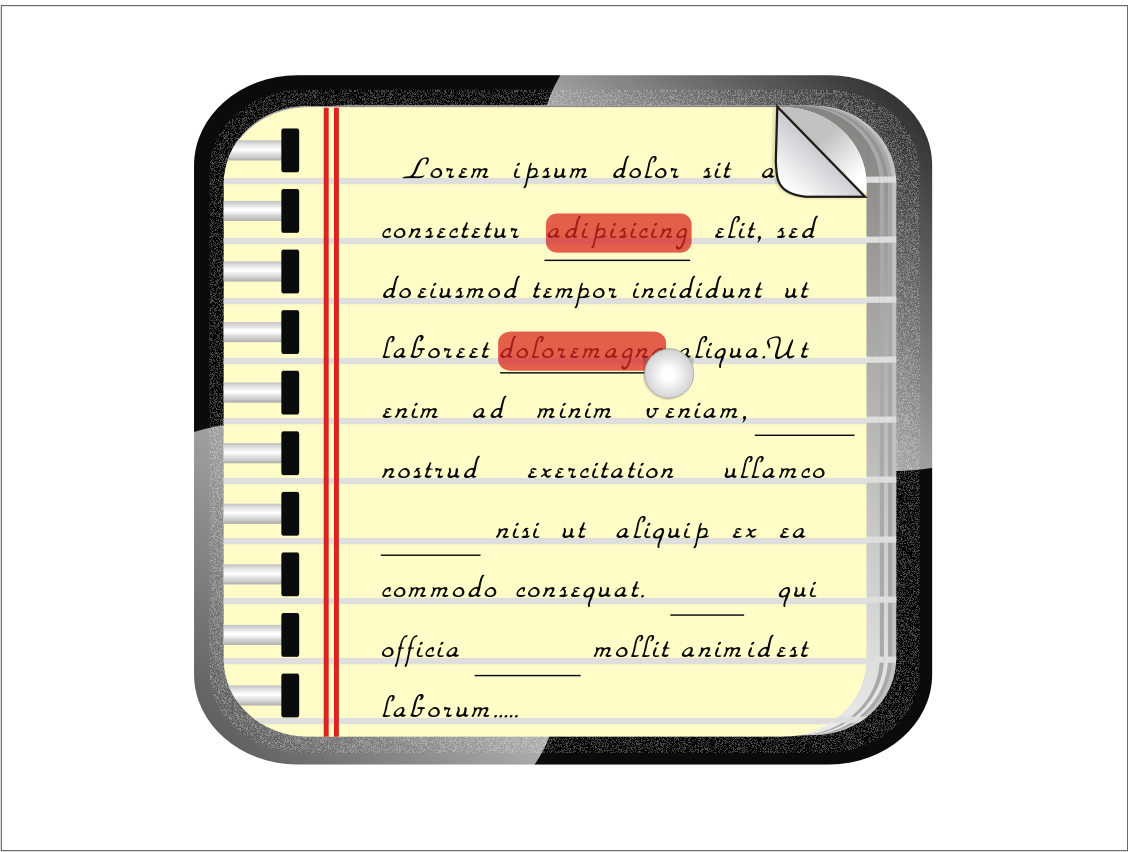 Lorem ipsum dolor sit a
consectetur adipisicing elit, sed
do eiusmod tempor incididunt ut
laboreet doloremagna aliqua.Ut
enim ad minim veniam,
nostrud exercitation ullamco
nisi ut aliquip ex ea
commodo consequat. qui
officia mollit anim id est
laborum.....